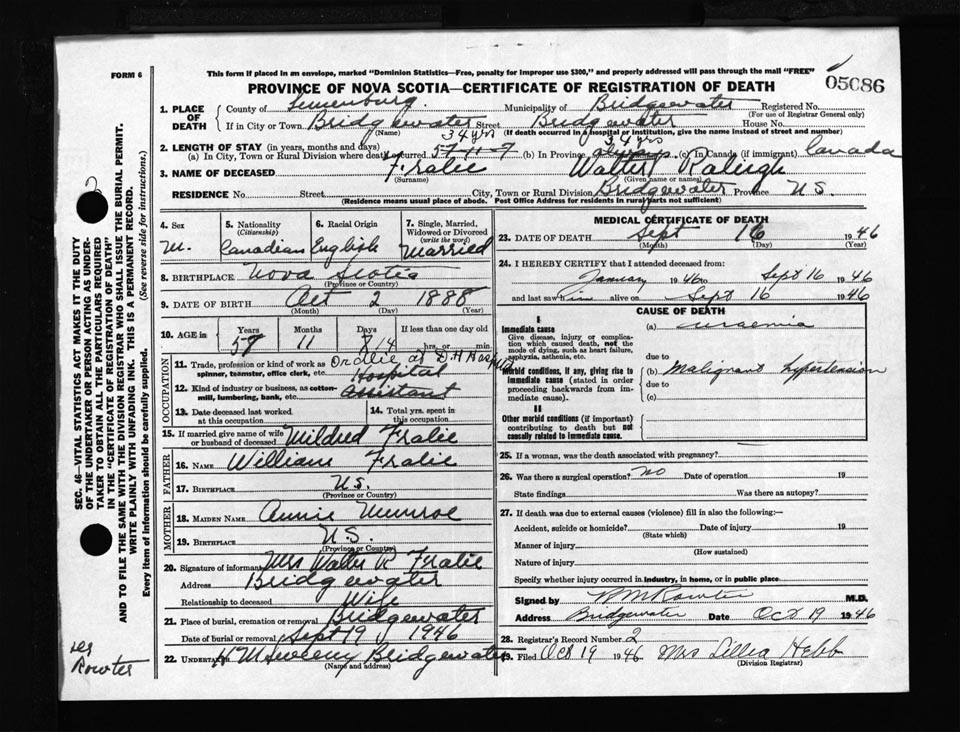 FORM 6
This form if placed in an envelope, marked "Dominion Statistics—Free, penalty for improper use $300," and properly addressed will pass through the mail "FREE"
05086
PROVINCE OF NOVA SCOTIA—CERTIFICATE OF REGISTRATION OF DEATH
1. PLACE OF DEATH County of Lunenburg Municipality of Bridgewater Registered No.
(For use of Registrar General only)
If in City or Town Bridgewater Street Bridgewater House No.
(Name) (If death occurred in a hospital or institution, give the name instead of street and number)
34 yrs 34 yrs
2. LENGTH OF STAY (in years, months and days)
(a) In City, Town or Rural Division where death occurred 57-11-9 (b) In Province always (c) In Canada (if immigrant) Canada
3. NAME OF DECEASED Fralic Walter Raleigh
(Surname) (Given name or names)
RESIDENCE No. Street City, Town or Rural Division Bridgewater Province N.S.
(Residence means usual place of abode. Post Office Address for residents in rural parts not sufficient)
4. Sex
M.
5. Nationality
(Citizenship)
Canadian
6. Racial Origin
English
7. Single, Married, Widowed or Divorced
(write the word)
Married
8. BIRTHPLACE Nova Scotia
(Province or Country)
9. DATE OF BIRTH Oct 2 1888
(Month) (Day) (Year)
10. AGE in Years Months Days If less than one day old
11 14 hrs. or min.
OCCUPATION
11. Trade, profession or kind of work as spinner, teamster, office clerk, etc. Ordlie at D.H Hospital
Hospital
12. Kind of industry or business, as cotton-mill, lumbering, bank, etc. assistant
13. Date deceased last worked at this occupation
14. Total yrs. spent in this occupation
15. If married give name of wife or husband of deceased Mildred Fralic
FATHER
16. NAME William Fralic
17. BIRTHPLACE N.S.
(Province or Country)
MOTHER
18. MAIDEN NAME Annie Munroe
19. BIRTHPLACE N.S.
(Province or Country)
20. Signature of informant Mrs Walter R Fralic
Address Bridgewater
Relationship to deceased Wife
21. Place of burial, cremation or removal Bridgewater
Date of burial or removal Sept 19 1946
22. UNDERTAKER H M Sweeny Bridgewater
(Name and address)
MEDICAL CERTIFICATE OF DEATH
23. DATE OF DEATH Sept 16 1946
(Month) (Day) (Year)
24. I HEREBY CERTIFY that I attended deceased from:
January 1946 to Sept 16 1946
and last saw him alive on Sept 16 1946
CAUSE OF DEATH
I
Immediate cause
Give disease, injury or complication which caused death, not the mode of dying, such as heart failure, asphyxia, asthenia, etc.
(a) uraemia
due to
Morbid conditions, if any, giving rise to immediate cause (stated in order proceeding backwards from immediate cause).
(b) Malignant hypertension
due to
(c)
II
Other morbid conditions (if important) contributing to death but not causally related to immediate cause.
25. If a woman, was the death associated with pregnancy?
26. Was there a surgical operation? no Date of operation 19
State findings Was there an autopsy?
27. If death was due to external causes (violence) fill in also the following:—
Accident, suicide or homicide? Date of injury 19
(State which)
Manner of injury
(How sustained)
Nature of injury
Specify whether injury occurred in industry, in home, or in public place
Signed by M.D.
Address Bridgewater Date Oct 19 1946
28. Registrar's Record Number 2
29. Filed Oct 19 1946 Mrs Lillia Hebb
(Division Registrar)
SEC. 46—VITAL STATISTICS ACT MAKES IT THE DUTY
OF THE UNDERTAKER OR PERSON ACTING AS UNDER-
TAKER TO OBTAIN ALL THE PARTICULARS REQUIRED
IN THE "CERTIFICATE OF REGISTRATION OF DEATH"
AND TO FILE THE SAME WITH THE DIVISION REGISTRAR WHO SHALL ISSUE THE BURIAL PERMIT.
WRITE PLAINLY WITH UNFADING INK. THIS IS A PERMANENT RECORD.
Every item of information should be carefully supplied. (See reverse side for instructions.)